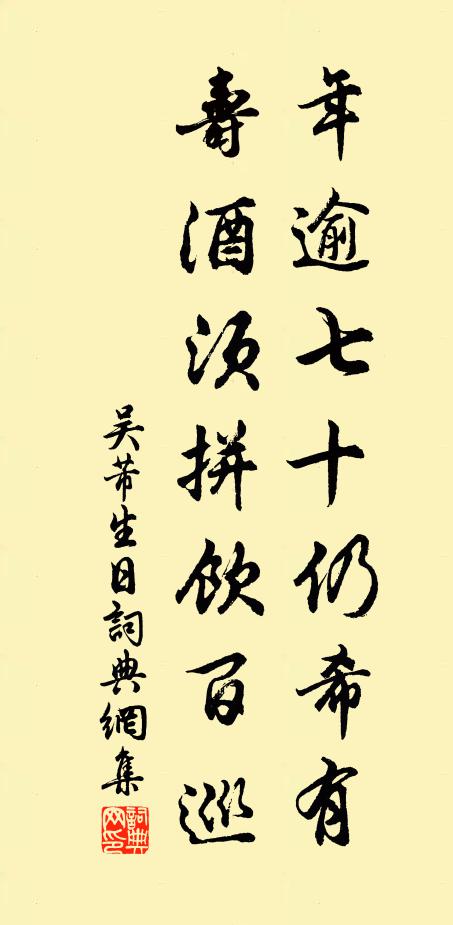 年逾七十仍希有
壽酒須拼飲百巡
吴芾生日詞典網集
詞典網印